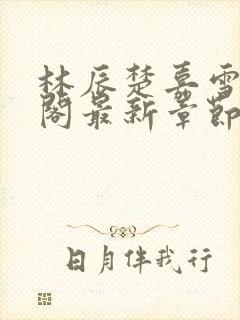 林辰楚嘉雪
阁最新章节
日月伴我行